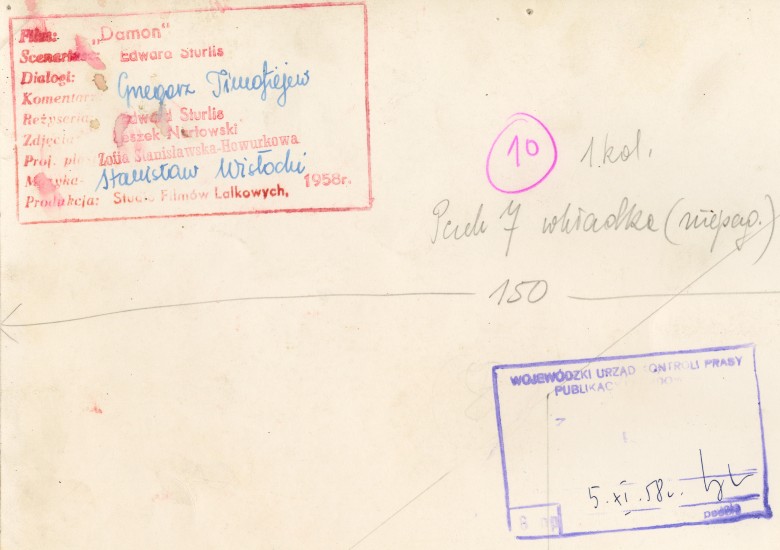 Film: „Damon"
Scenariusz: Edward Sturlis
Dialogi: Grzegorz Timofiejew
Komentarz:
Reżyseria: Edward Sturlis
Zdjęcia: Leszek Nartowski
Proj. plast. Zofia Stanisławska-Howurkowa
Muzyka: Stanisław Wisłocki
Produkcja: Studio Filmów Lalkowych, 1958r.
10
1 kol.
7 wkładka (niepag.)
150
WOJEWÓDZKI URZĄD KONTROLI PRASY
PUBLIKACJI
5.XI.58r.